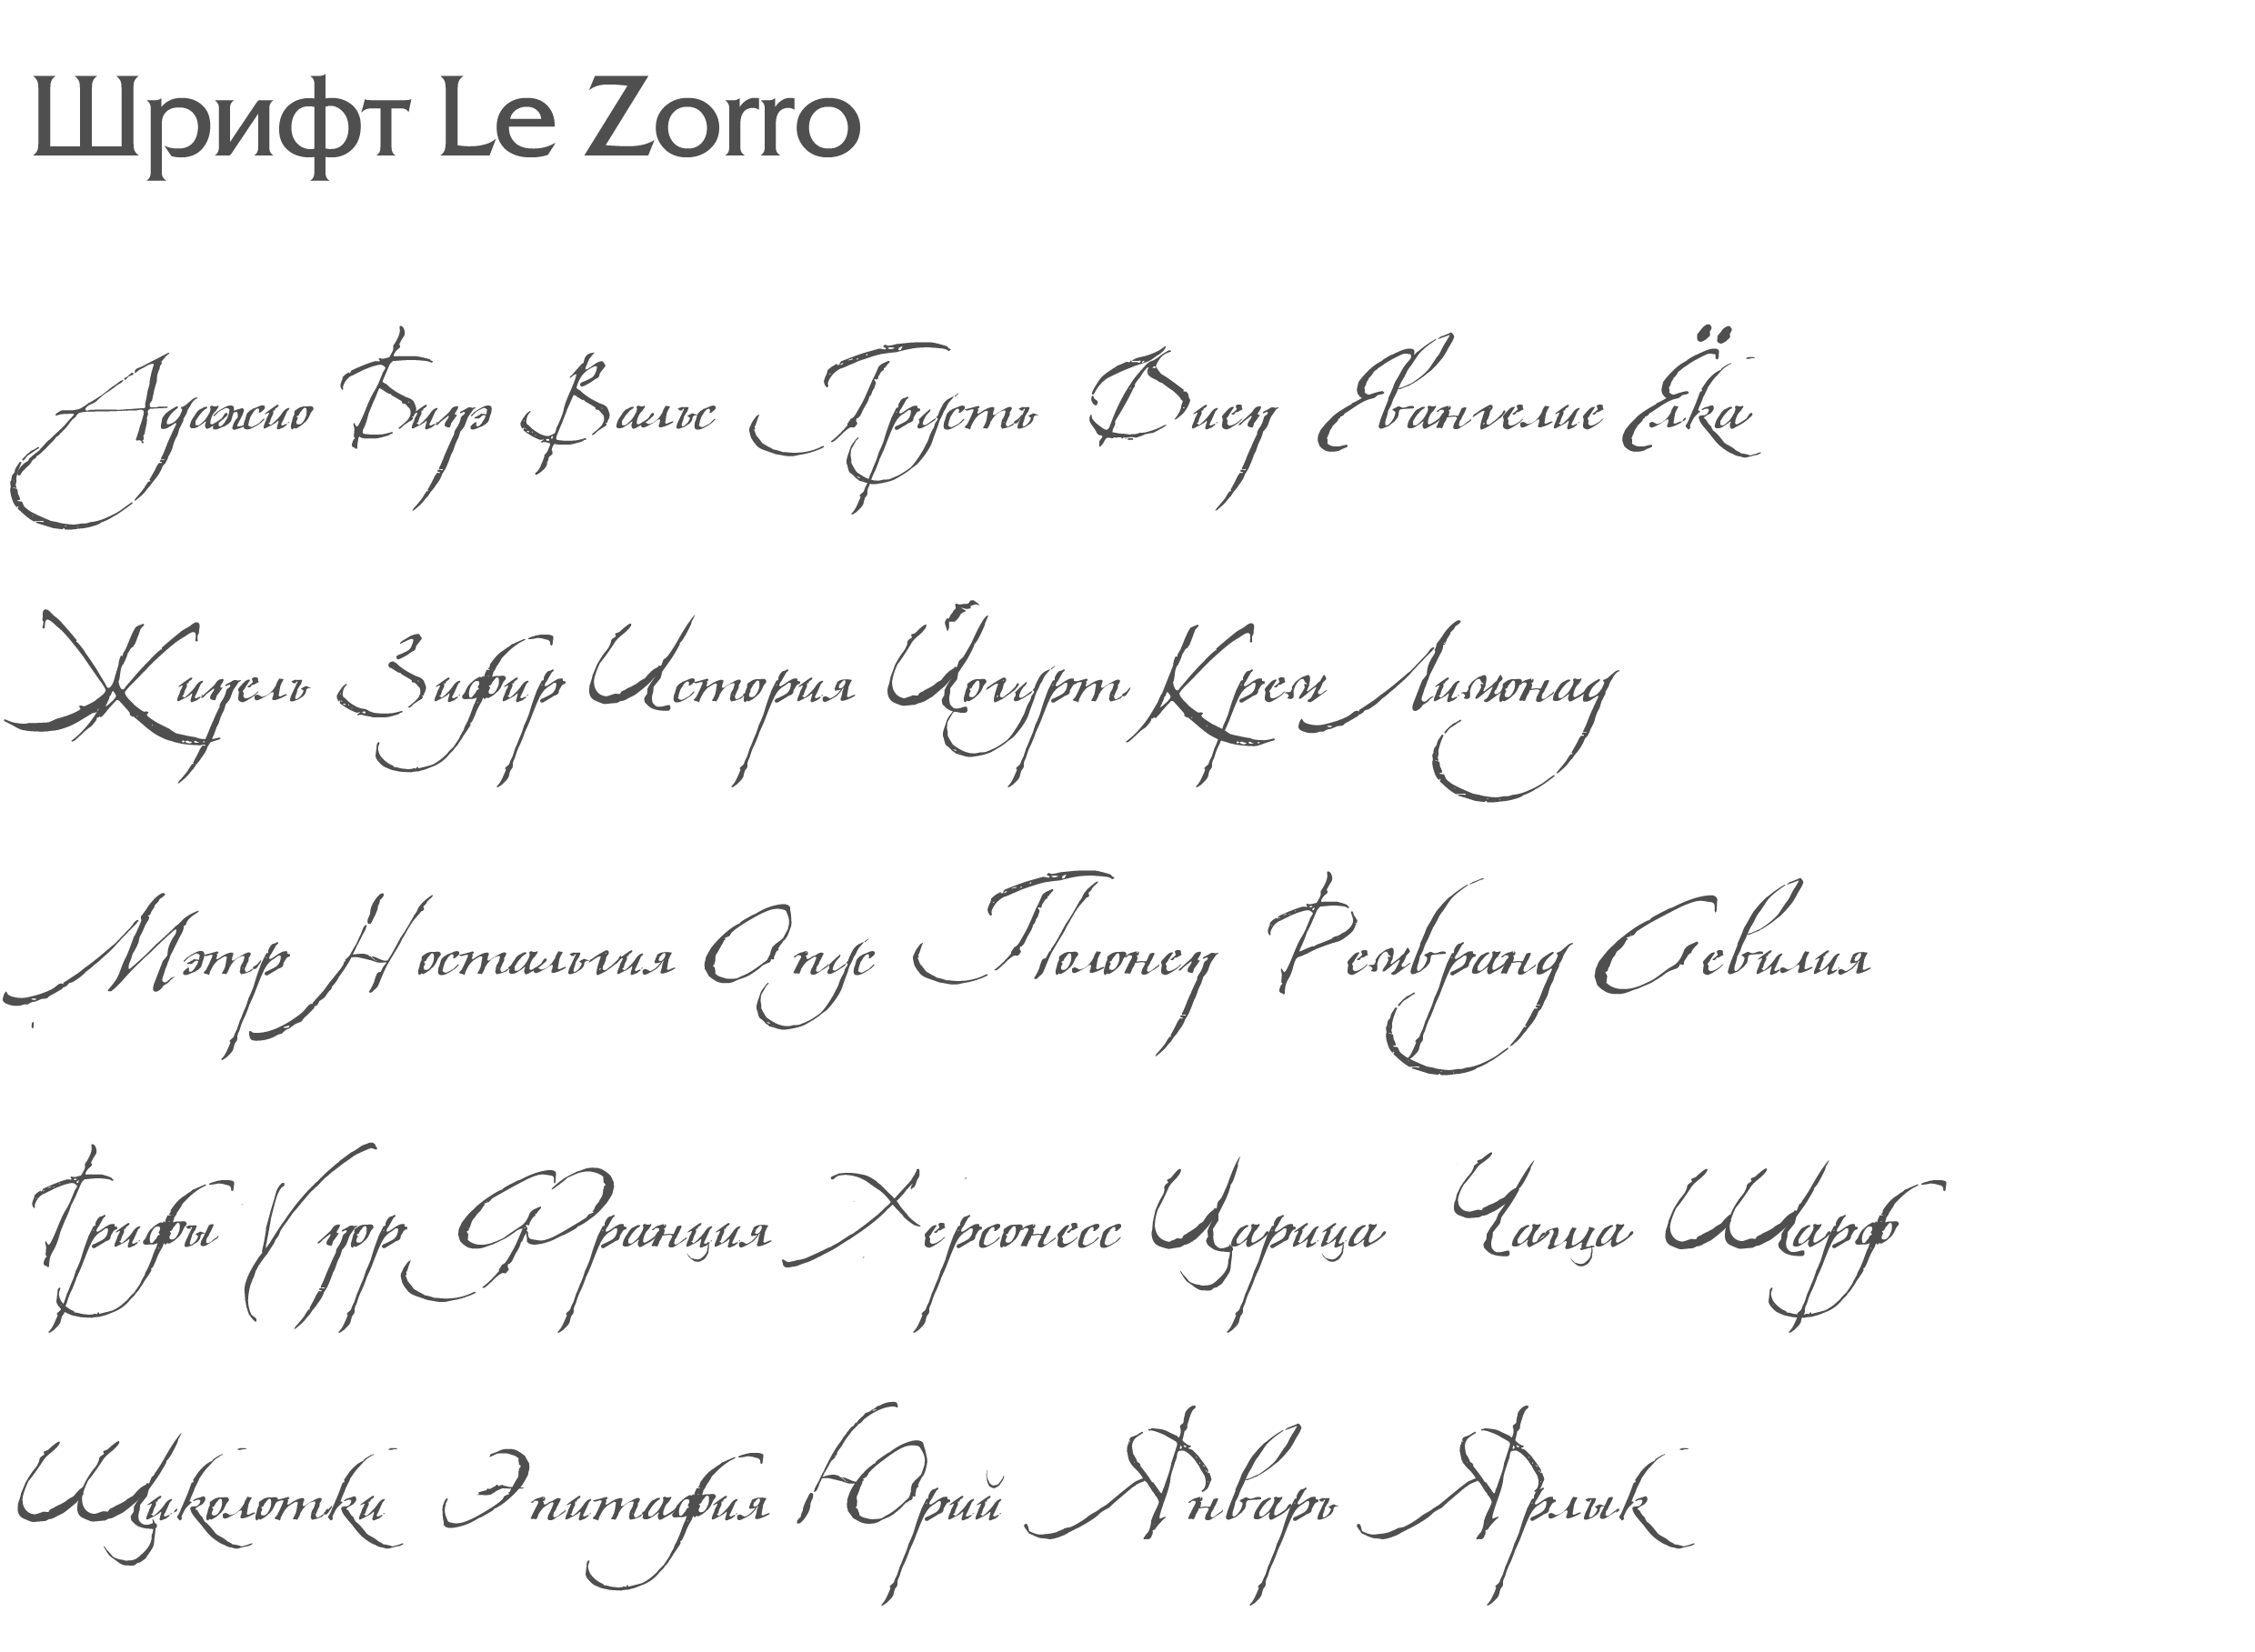 Шрифт Le Zorro
Адажио Бизэ Вальс Грусть Диез Евангелие Ёлка
Жизель Зифир История Йогурт Крем Лимонад
Мэтр Ностальгия Опус Полонез Рембранд Севилия
Трифы Узор Франция Херсонесс Царица Чаща Шарф
Щиколотки Эпитафия Юрий Январь Ярлык